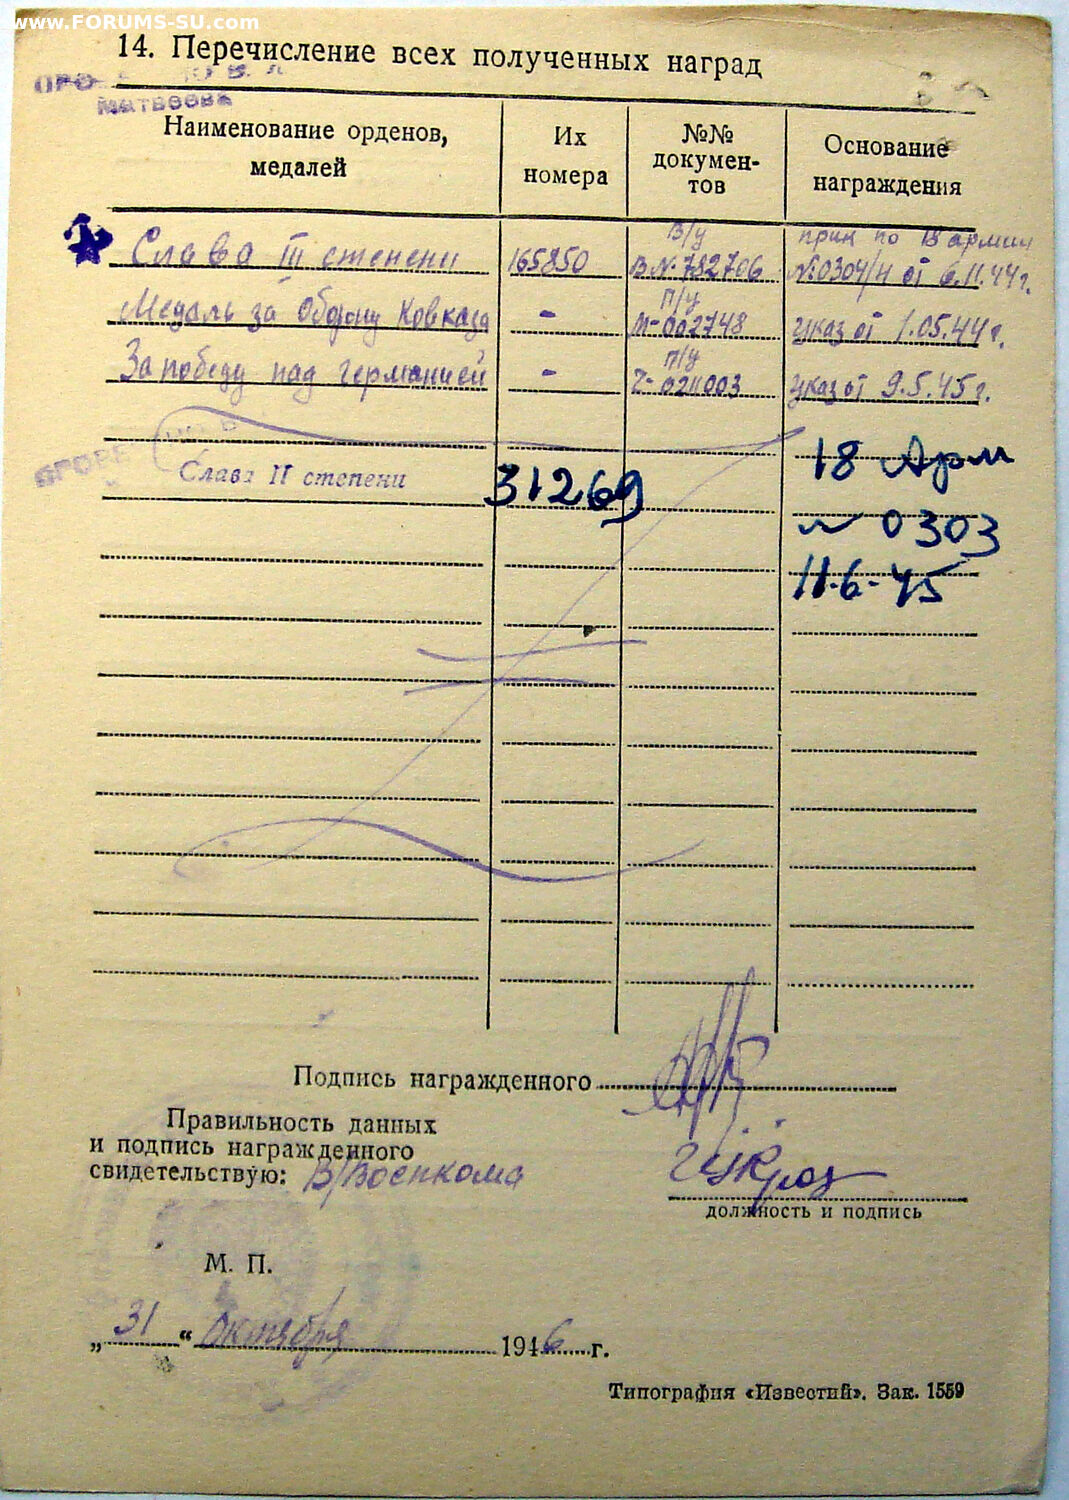 www.FORUMS-SU.com
14. Перечисление всех полученных наград
МАТВЕЕВА
Наименование орденов, медалей
Их номера
№№ докумен-тов
Основание награждения
Слава III степени 165850 В/у В№782706 прик по 18 армии №0304/н от 6.11.44г.
Медаль за Оборону Кавказа - П/у М-002748 Указ от 1.05.44г.
За победу над германией - П/у 0211003 Указ от 9.5.45г.
Слава II степени 31269 18 Арм
0303
11.6.45
Подпись награжденного
Правильность данных
и подпись награжденного
свидетельствую: В/Военкома
должность и подпись
М. П.
„31“ Октября 1946 г.
Типография «Известий». Зак. 1559